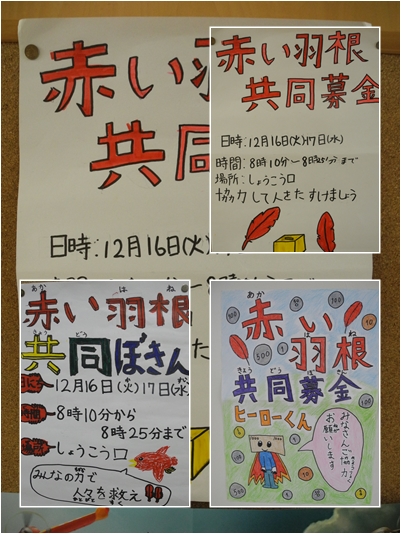 赤い
共同
日時:12月16日(火)
赤い羽根
共同募金
日時:12月16日(火)17日(水)
時間:8時10分〜8時25分まで
場所:しょうこう口
協力して人をたすけましょう
あか はね
赤い羽根
きょう どう
共同ぼきん
12月16日(火)17日(水)
時間 8時10分から
8時25分まで
しょうこう口
みんなの力で
人々を救え!!
あか
赤い
はね
羽根
きょう どう ぼ きん
共同募金
ヒーローくん
みなさんご協力
お願いします
100
500
10